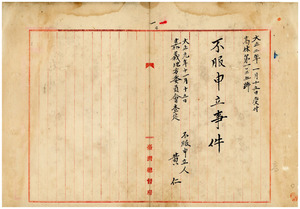 大正二年一月十六日受付
高林第一三五號
不服申立事件
大正元年十一月十三日
嘉義地方委員會查定
不服申立人
黄仁
臺灣總督府